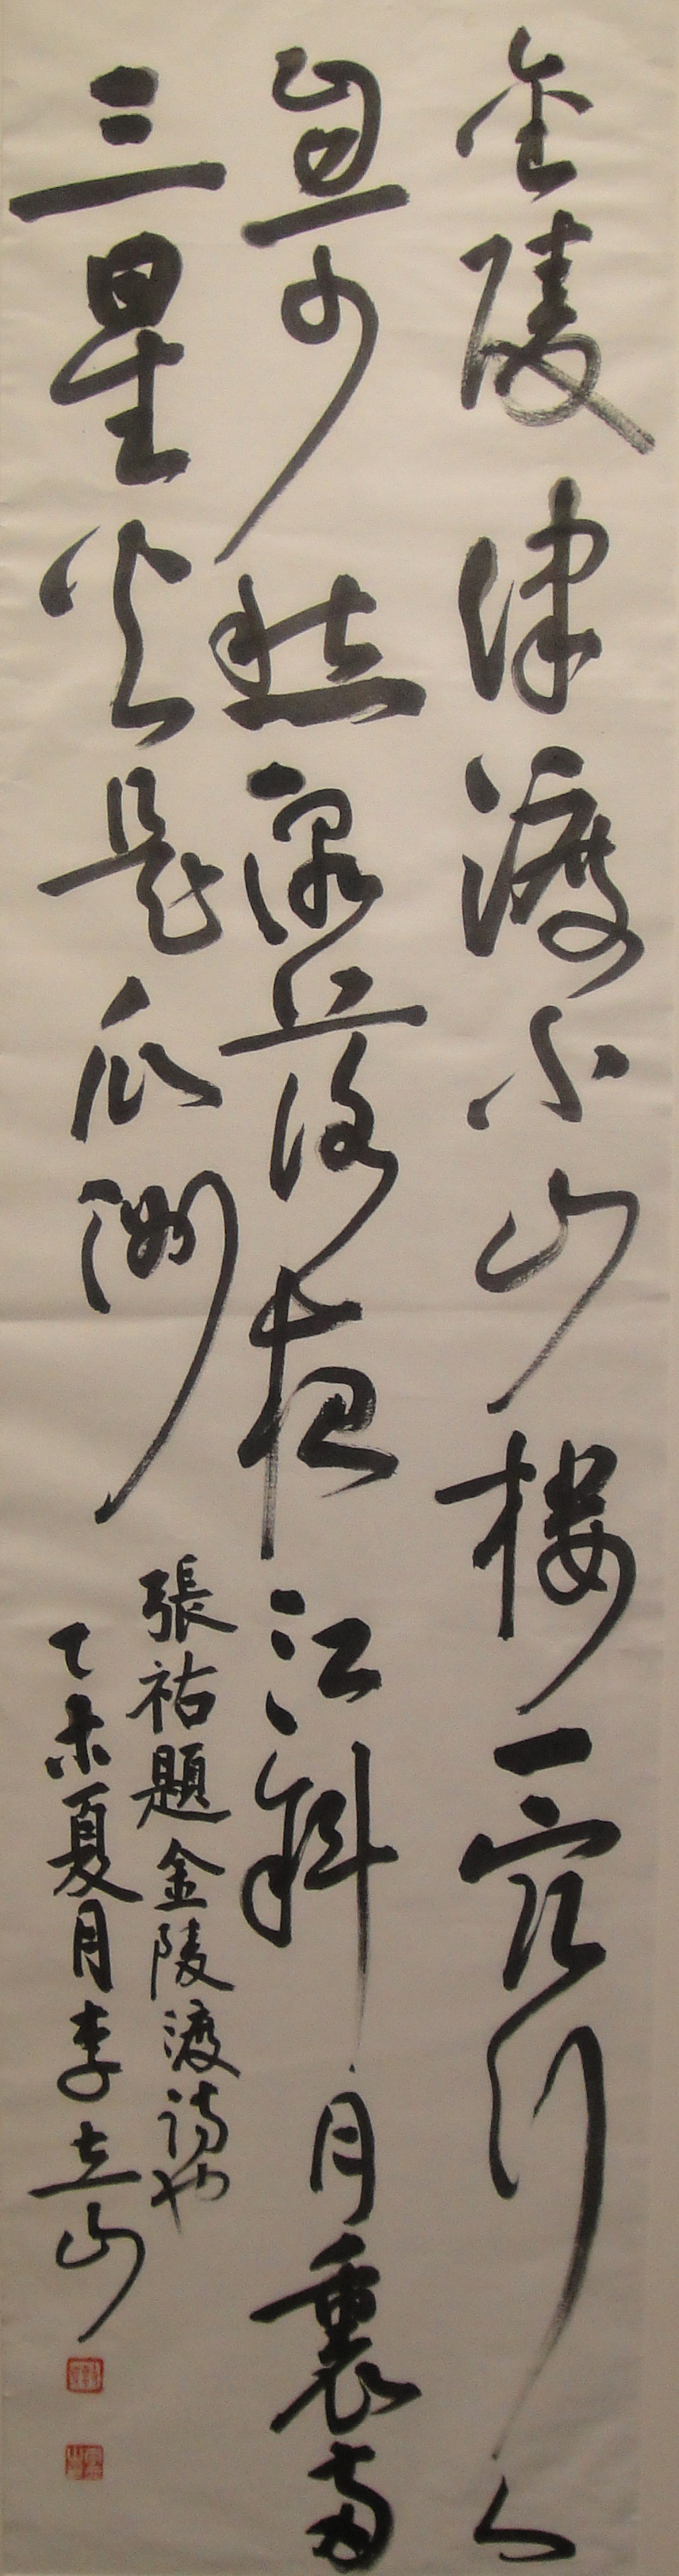 金陵津渡小山樓一宿行人
自可愁潮落夜江斜月裏兩
三星火是瓜洲
張祜題金陵渡詩也
乙未夏月李立山